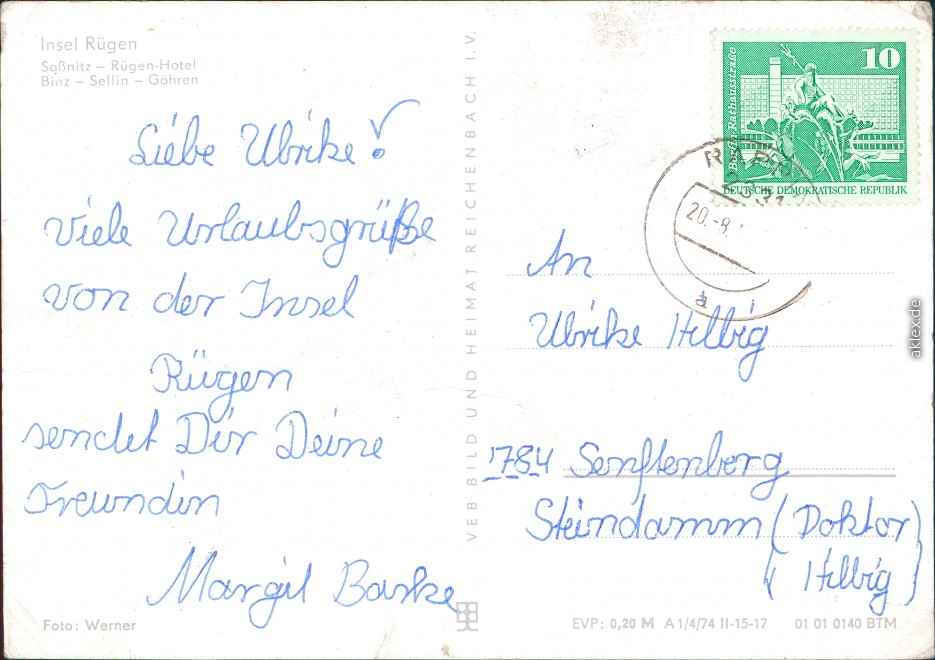 Insel Rügen
Saßnitz – Rügen-Hotel
Binz – Sellin – Göhren
Liebe Ulrike!
viele Urlaubsgrüße
von der Insel
Rügen
sendet Dir Deine
Freundin
Margit Baske
Foto: Werner
VEB BILD UND HEIMAT REICHENBACH I.V.
10
Berlin, Rathausstraße
DEUTSCHE DEMOKRATISCHE REPUBLIK
2331
20.-8.
a
An
Ulrike Helbig
784 Senftenberg
Steindamm (Doktor)
( Helbig )
EVP: 0,20 M A 1/4/74 II-15-17 01 01 0140 BTM
aklex.de